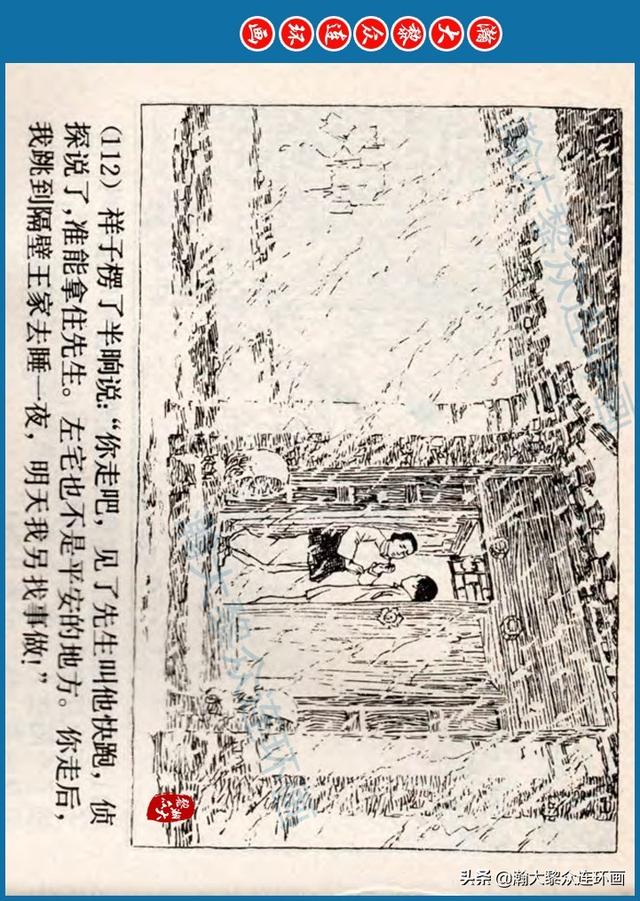 瀚大黎众连环画
(112) 祥子楞了半晌说：“你走吧，见了先生叫他快跑，侦
探说了，准能拿住先生。左宅也不是平安的地方。你走后，
我跳到隔壁王家去睡一夜，明天我另找事做！”
瀚大黎众连环画
瀚大黎众连环画
瀚大黎众
头条 @瀚大黎众连环画